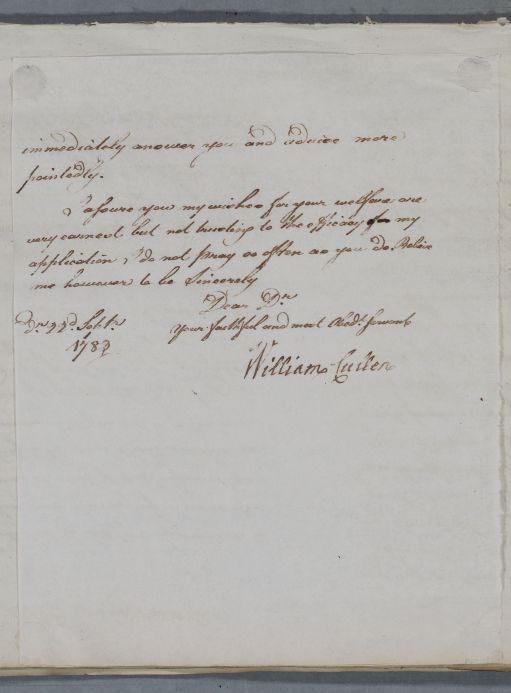 immediately answer you and advice more
pointedly.
I assure you my wishes for your wellfare are
very earnest but not trusting to the efficacy of my
application I do not pray so often as you do. Beleive
me however to be Sincerely
Dear Dr
Your faithful and most Obedt. servant
22d. Septr.
1782
William Cullen